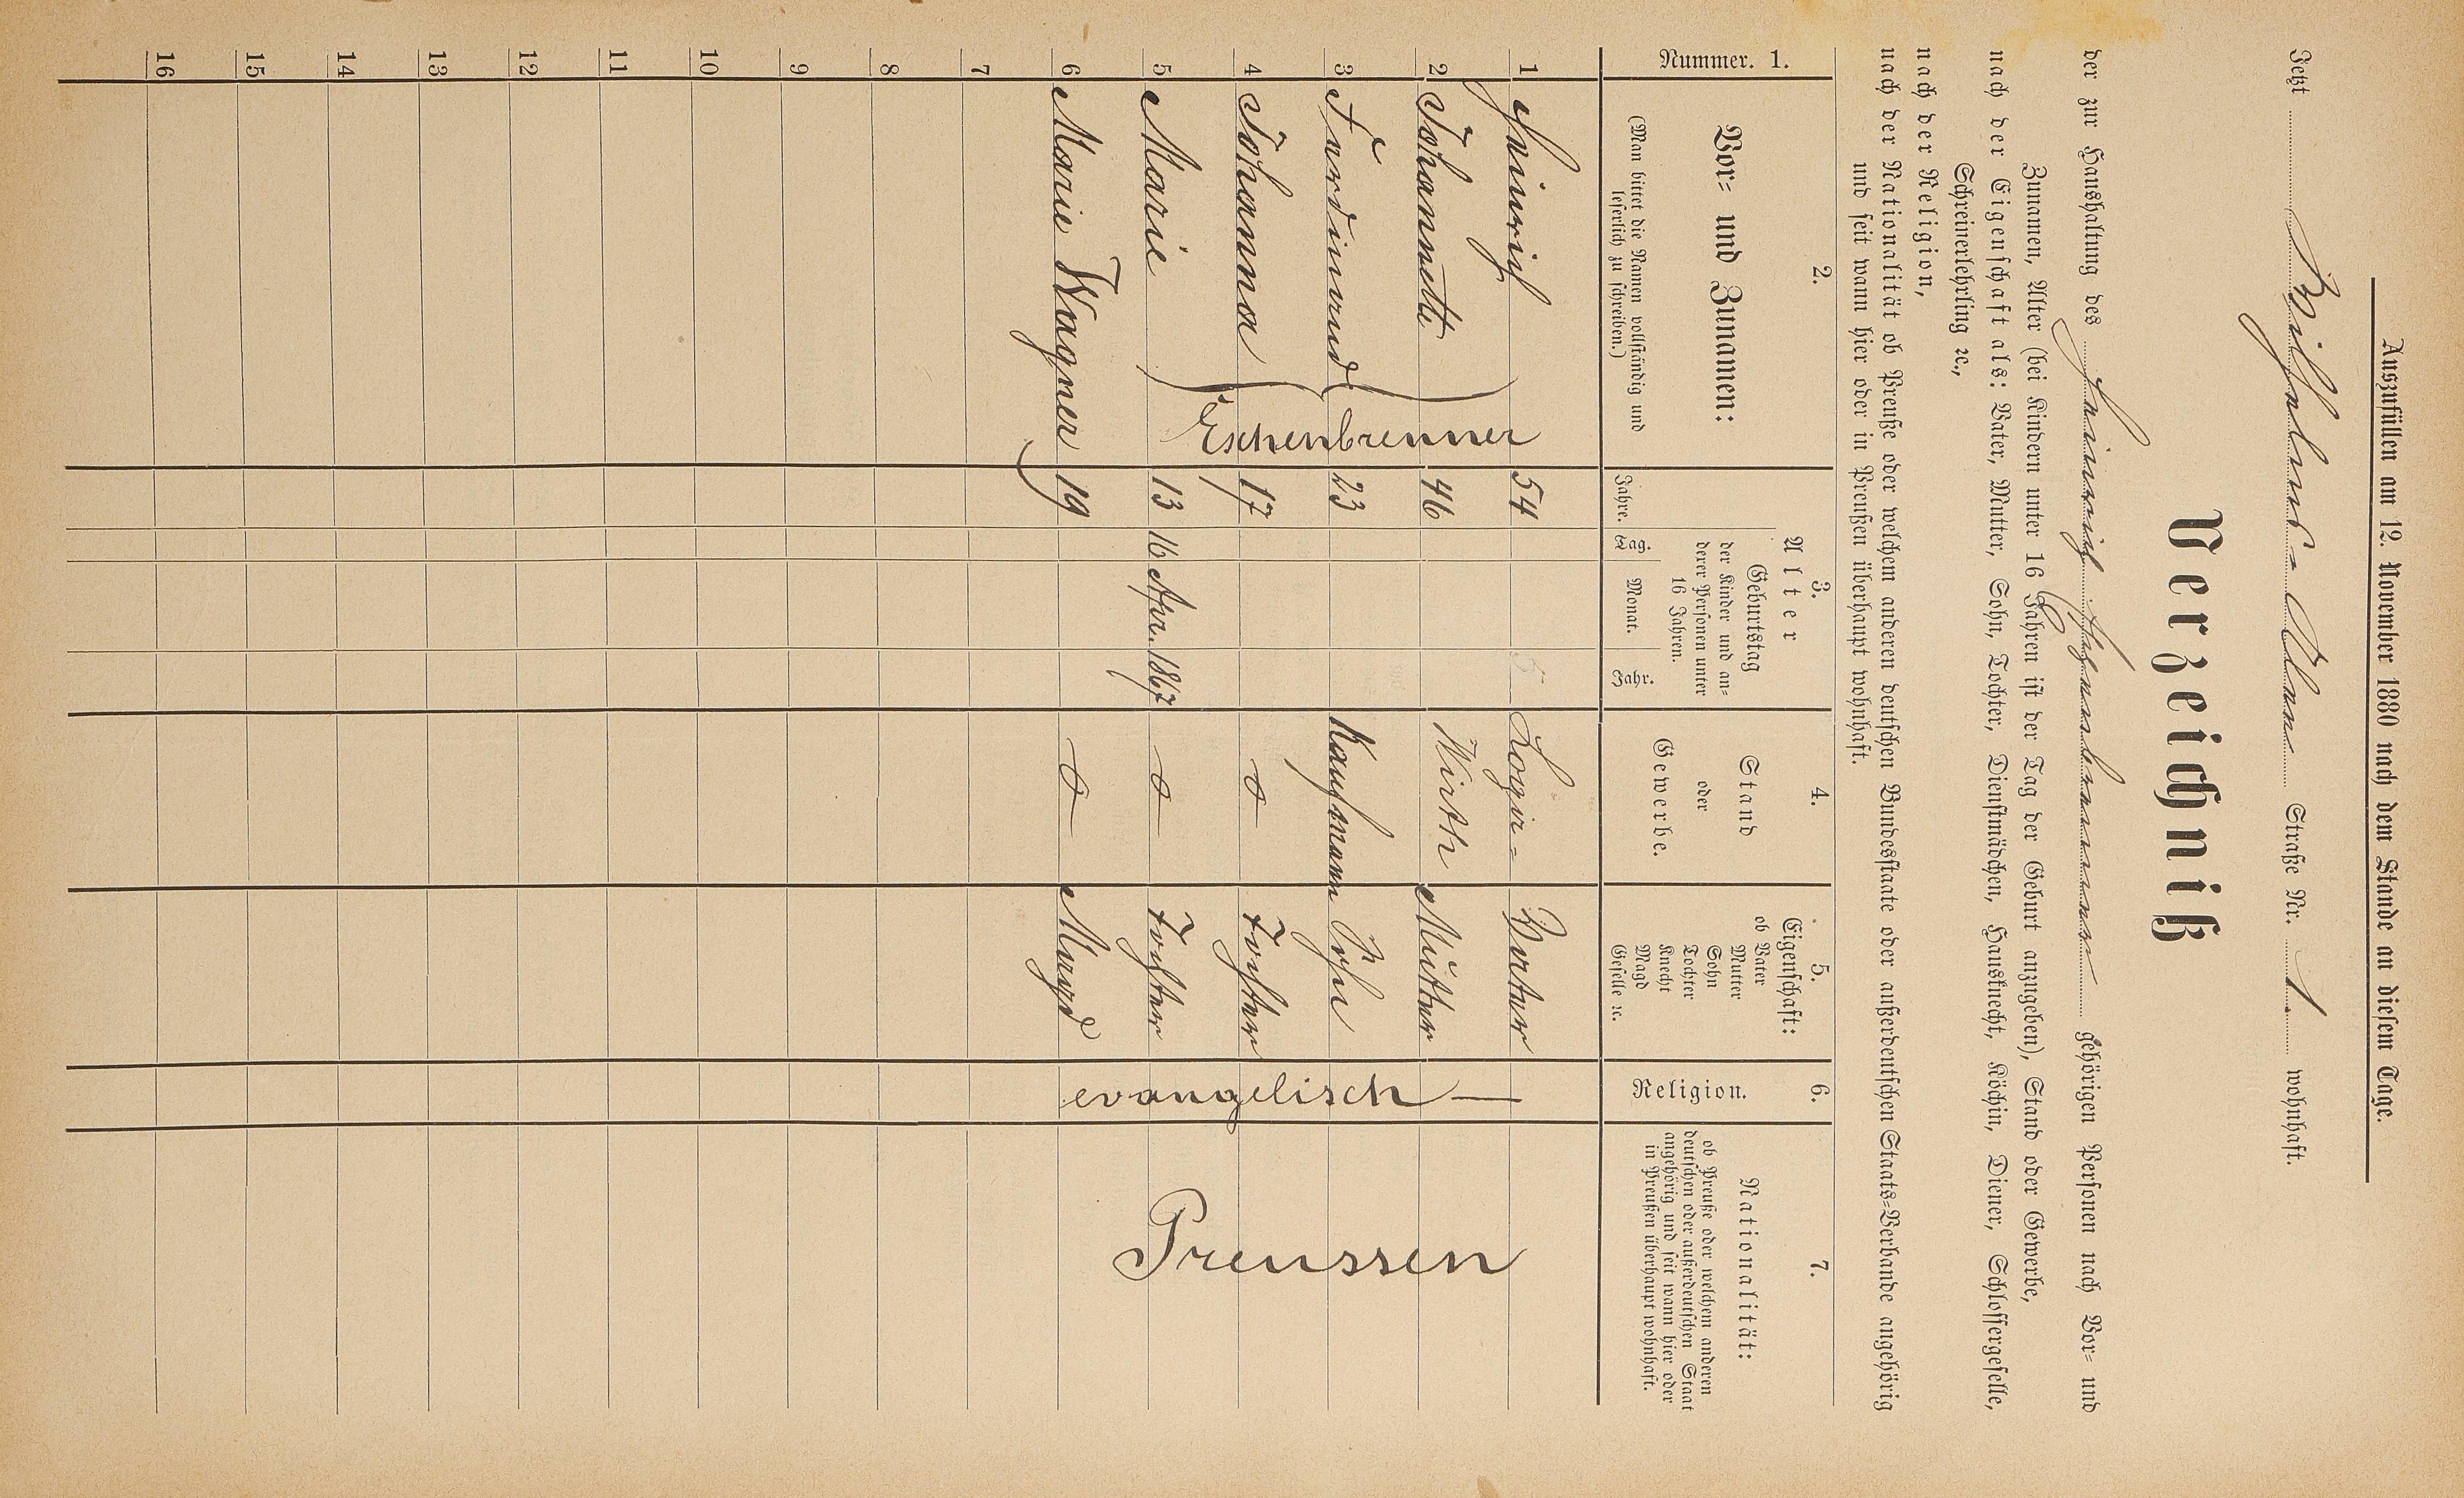 Auszufüllen am 12. November 1880 nach dem Stande an diesem Tage.
Jetzt Wilhelms-Allee Straße Nr. 1. wohnhaft.
Verzeichniß
der zur Haushaltung des Heinrich Eschenbrenner gehörigen Personen nach Vor- und
Zunamen, Alter (bei Kindern unter 16 Jahren ist der Tag der Geburt anzugeben), Stand oder Gewerbe,
nach der Eigenschaft als: Vater, Mutter, Sohn, Tochter, Dienstmädchen, Hausknecht, Köchin, Diener, Schlossergeselle,
Schreinerlehrling ꝛc.,
nach der Religion,
nach der Nationalität ob Preuße oder welchem anderen deutschen Bundesstaate oder außerdeutschen Staats-Verbande angehörig
und seit wann hier oder in Preußen überhaupt wohnhaft.
Nummer. 1.
2.
Vor- und Zunamen:
(Man bittet die Namen vollständig und
leserlich zu schreiben.)
3.
Alter
Jahre.
Geburtstag
der Kinder und an-
derer Personen unter
16 Jahren.
Tag. Monat. Jahr.
4.
Stand
oder
Gewerbe.
5.
Eigenschaft:
ob Vater
Mutter
Sohn
Tochter
Knecht
Magd
Geselle ꝛc.
6.
Religion.
7.
Nationalität:
ob Preuße oder welchem anderen
deutschen oder außerdeutschen Staat
angehörig und seit wann hier oder
in Preußen überhaupt wohnhaft.
1 Heinrich 54 Logir- Vater
2 Johannette 46 Wirth Mutter
3 Ferdinand 23 Kaufmann Sohn
4 Johanna 17 0 Tochter
5 Marie 13 16 Apr. 1867 0 Tochter
Eschenbrenner
6 Marie Wagner 19 0 Magd
evangelisch —
Preussen
7
8
9
10
11
12
13
14
15
16